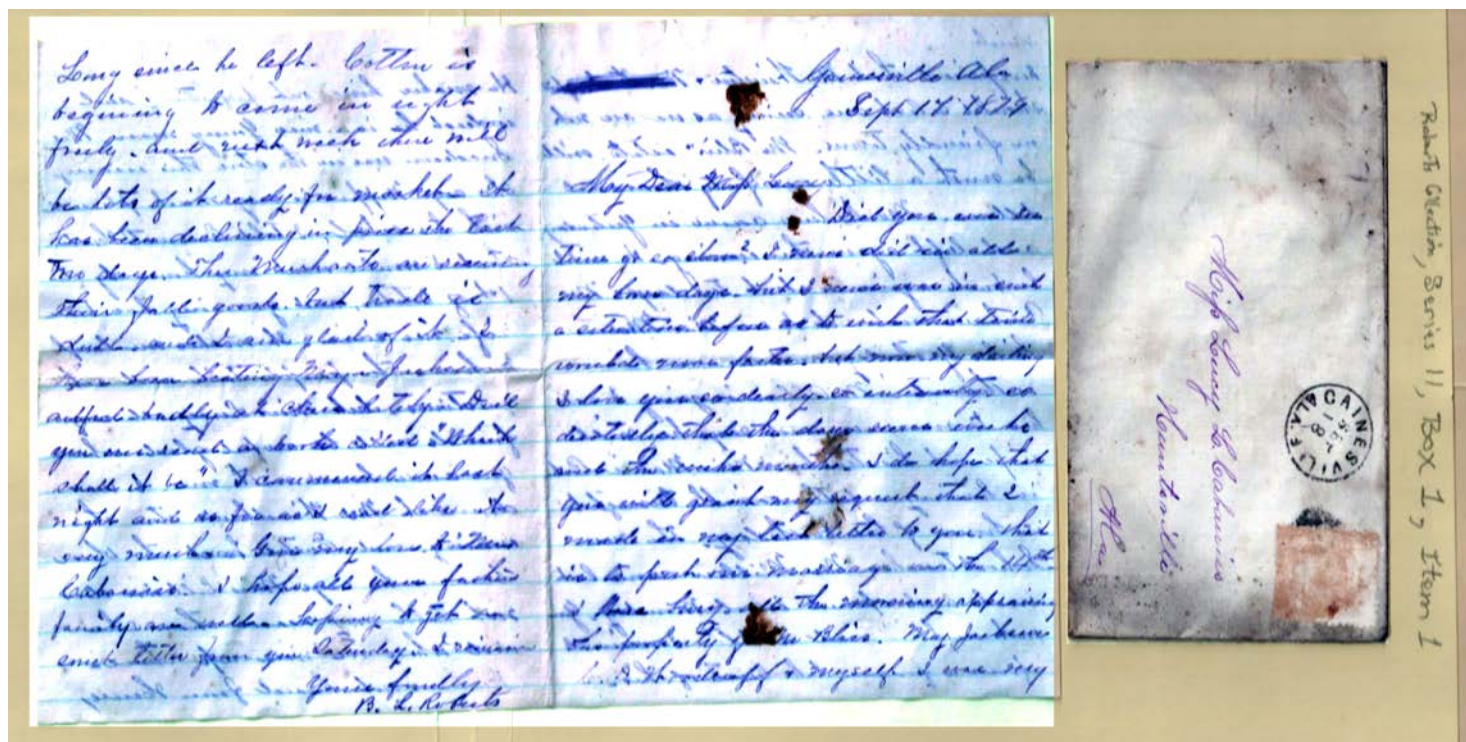 Long since he left. Cotton is
begining to come in right
freely. and next week there will
be lots of it ready for market. it
has been declining in price the last
two days. The Merchants are receiving
their fall goods. but trade is
and I am glad of it. I
have been beating Major Jackson &
badly at chess lately. Did
you ever read a book called "What
shall it be" I commenced it last
night and so far as I read like it
very much. Give my love to Miss
Cabaniss. I hope all your father's
family are well. Hoping to get
sweet letter from you Saturday. I remain
Yours fondly
B. L. Roberts
Gainesville Ala
Sept 17. 1879
My Dear Miss Lucy
Did you ever see
time go so slow? I never did in all
my born days. but I never was in such
a situation before as to wish that time
would move faster. but now my darling
I love you so dearly. so intensely so
that the days seem to be
and the weeks months. I do hope that
you will grant my request that I
made in my last letter to you. that
is to our marriage on the
I have been all the morning appraising
the property of Mr Bliss. Maj Jackson
& myself. I was very
Miss Lucy L. Cabaniss
Huntsville
Ala
GAINESVILLE ALA
Roberts Collection, Series 11, Box 1, Item 1